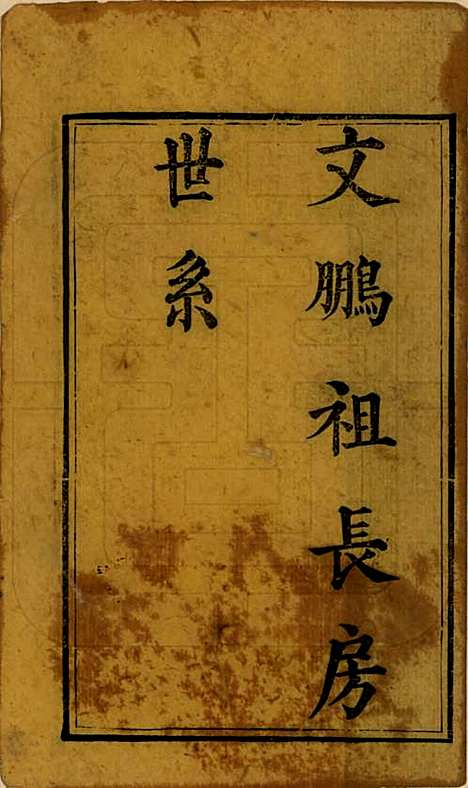 文鵬祖長房
世系